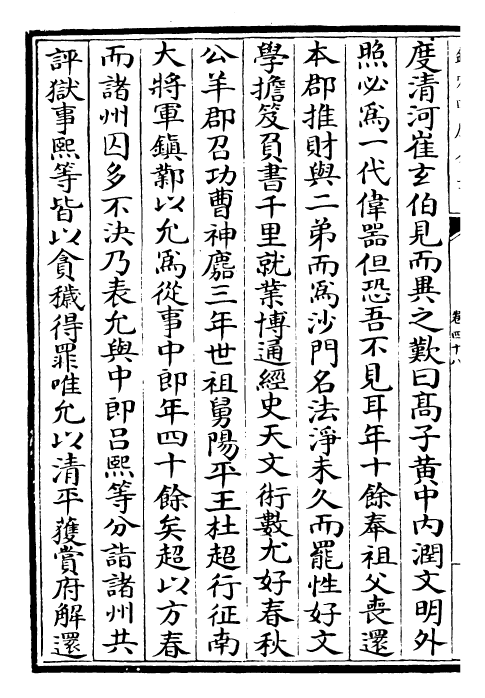 度清河崔玄伯見而異之歎曰高子黄中内潤文明外
照必為一代偉器但恐吾不見耳年十餘奉祖父喪還
本郡推財與二弟而為沙門名法淨未久而罷性好文
學擔笈負書千里就業博通經史天文術數尤好春秋
公羊郡召功曹神䴥三年世祖舅陽平王杜超行征南
大將軍鎮鄴以允為從事中郎年四十餘矣超以方春
而諸州囚多不決乃表允與中郎吕熙等分詣諸州共
評獄事熙等皆以貪穢得罪唯允以清平獲賞府解還
卷四十八